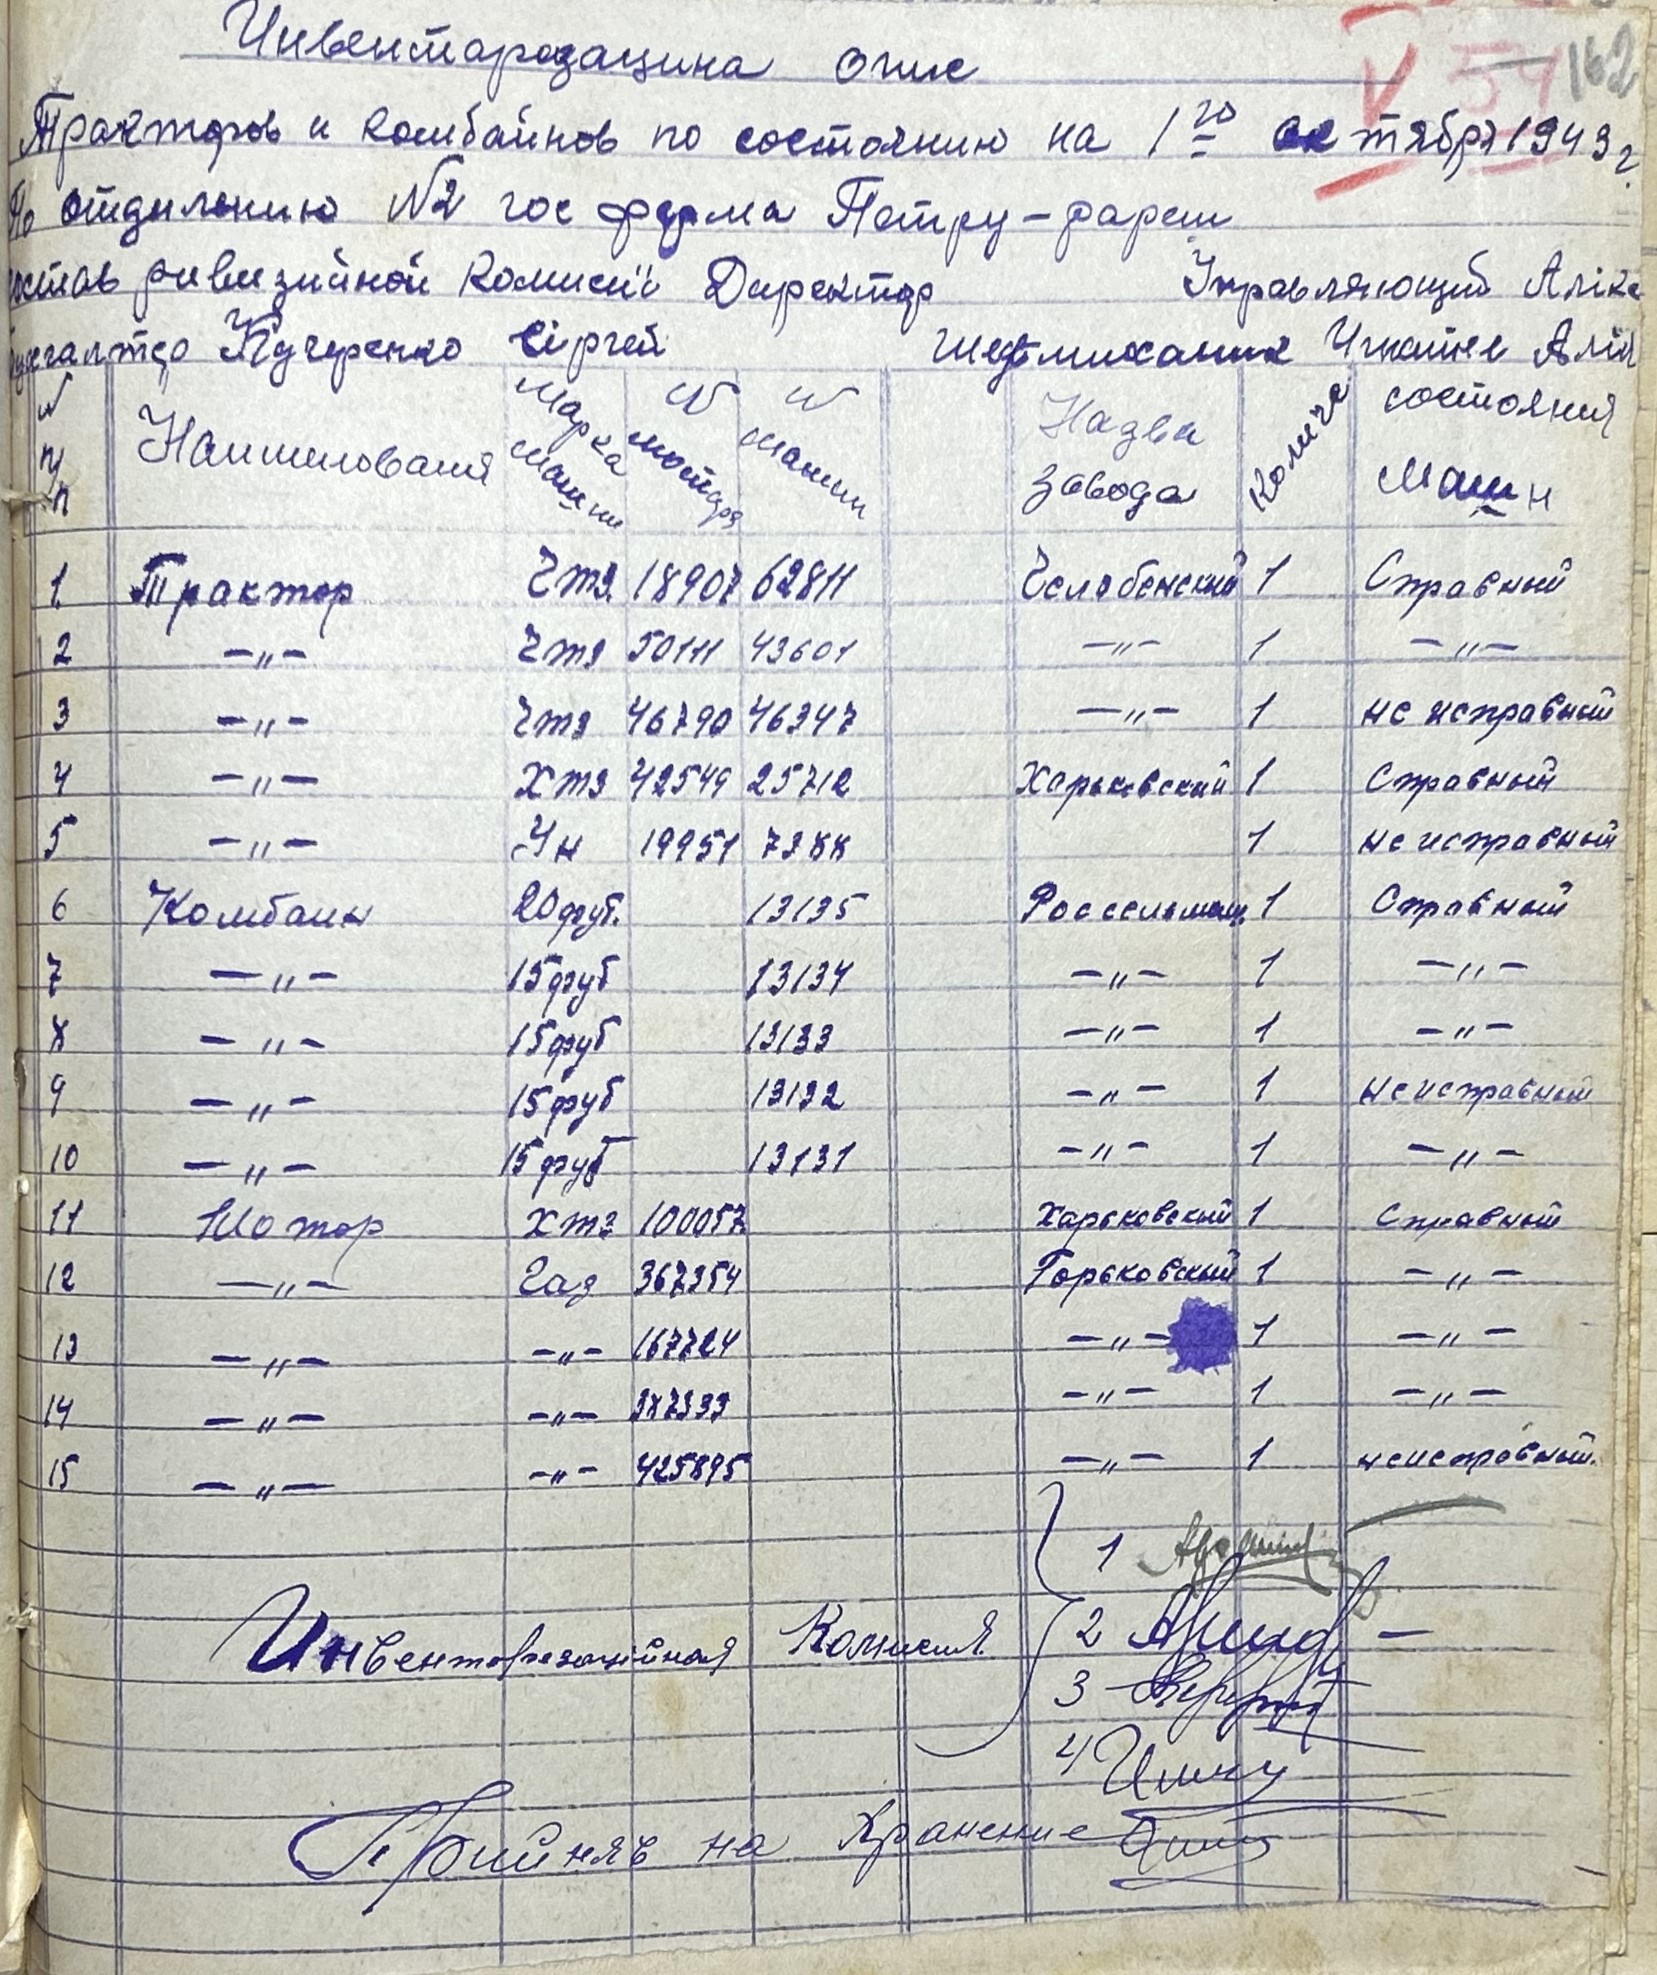 162
54
Инвентарозацина опис
Тракторов и комбайнов по состоянию на 1го октября 1943 г.
По отдилению №2 гос ферма Петру-рареш
состав ривизийной Комисий Директор Управляющий
Бухгалтер Кучеренко Сіргей шефмиханик
N п/п Наименования Марка машины N мотора N машин Назва завода Количе состояния Машин
1. Трактор Чтз. 18907 62811 Челябенский 1 Справный
2 —„— Чтз 50111 43601 —„— 1 —„—
3 —„— Чтз 46790 46347 —„— 1 не исправный
4 —„— Хтз 42549 25712 Харьковский 1 Справный
5 —„— Ун 19951 7388 1 не исправный
6 Комбаин 20 фут. 13135 Россельмаш. 1 Справный
7 —„— 15 фут 13134 —„— 1 —„—
8 —„— 15 фут 13133 —„— 1 —„—
9 —„— 15 фут 13132 —„— 1 не исправный
10 —„— 15 фут 13131 —„— 1 —„—
11 Мотор Хтз 100057 Харьковский 1 Справный
12 —„— Газ 367354 Горьковский 1 —„—
13 —„— —„— 167724 —„— 1 —„—
14 —„— —„— 387333 —„— 1 —„—
15 —„— —„— 425895 —„— 1 неисправный.
1
Инвенторезацийная Комисия 2
3
4
Прийняв на Хранение